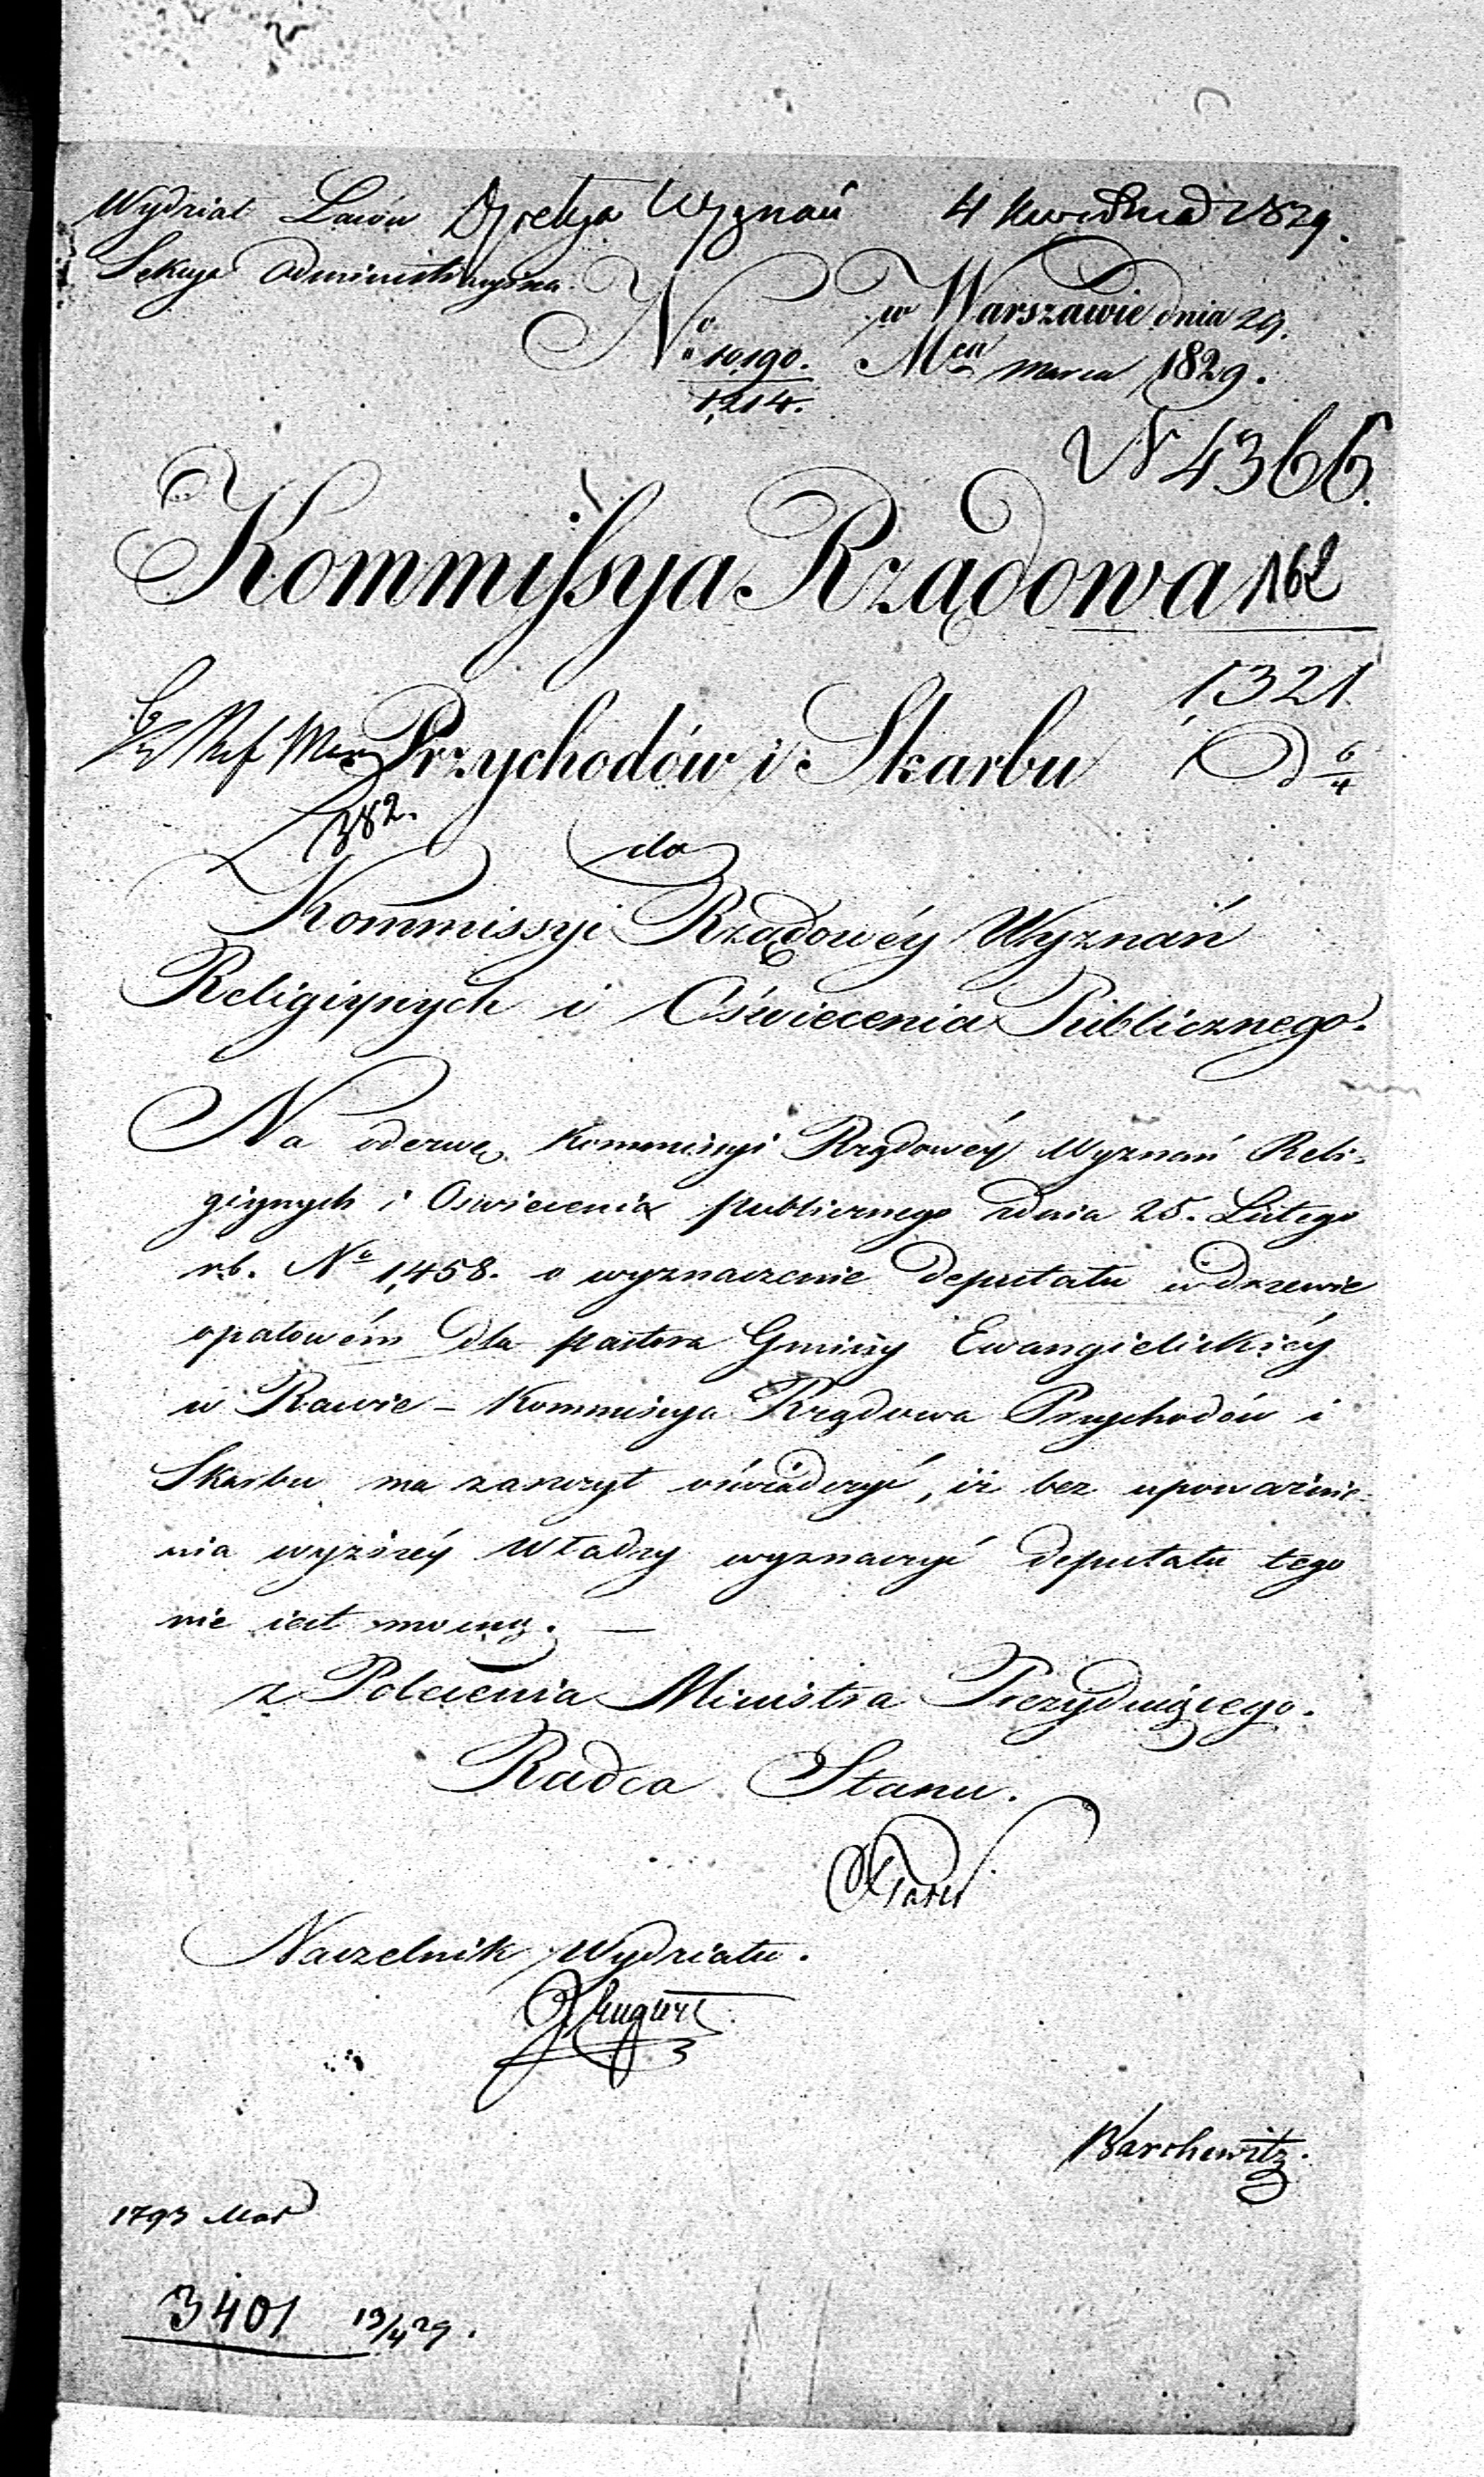 Wydział Lasów Dyrekcja Wyznań 4 kwietnia 1829.
Sekcya Administracyina.
No 10,190. w Warszawie dnia 29.
1,214. Mca Marca 1829.
N 4366.
Kommissya Rządowa 162
1,321
Przychodów i Skarbu
6/4
382.
do
Kommissyi Rządowéy Wyznań
Religiynych i Oświecenia Publicznego.
Na odezwę Kommissyi Rządowéy Wyznań Reli-
giynych i Oswiecenia publicznego zdnia 25. Lutego
r.b. No 1,458. o wyznaczenie deputatu w drzewie
opałowém dla pastora Gminy Ewangielickiéy
w Rawie – Kommissya Rządowa Przychodów i
Skarbu ma zaszczyt oświadczyć, iż bez upoważnie-
nia wyższéy Władzy wyznaczyć deputatu tego
nie iest mocną. —
z Polecenia Ministra Prezyduiącego.
Radca Stanu.
Naczelnik Wydziału.
Barchewitz.
1793 Mar
3401 13/4 29.